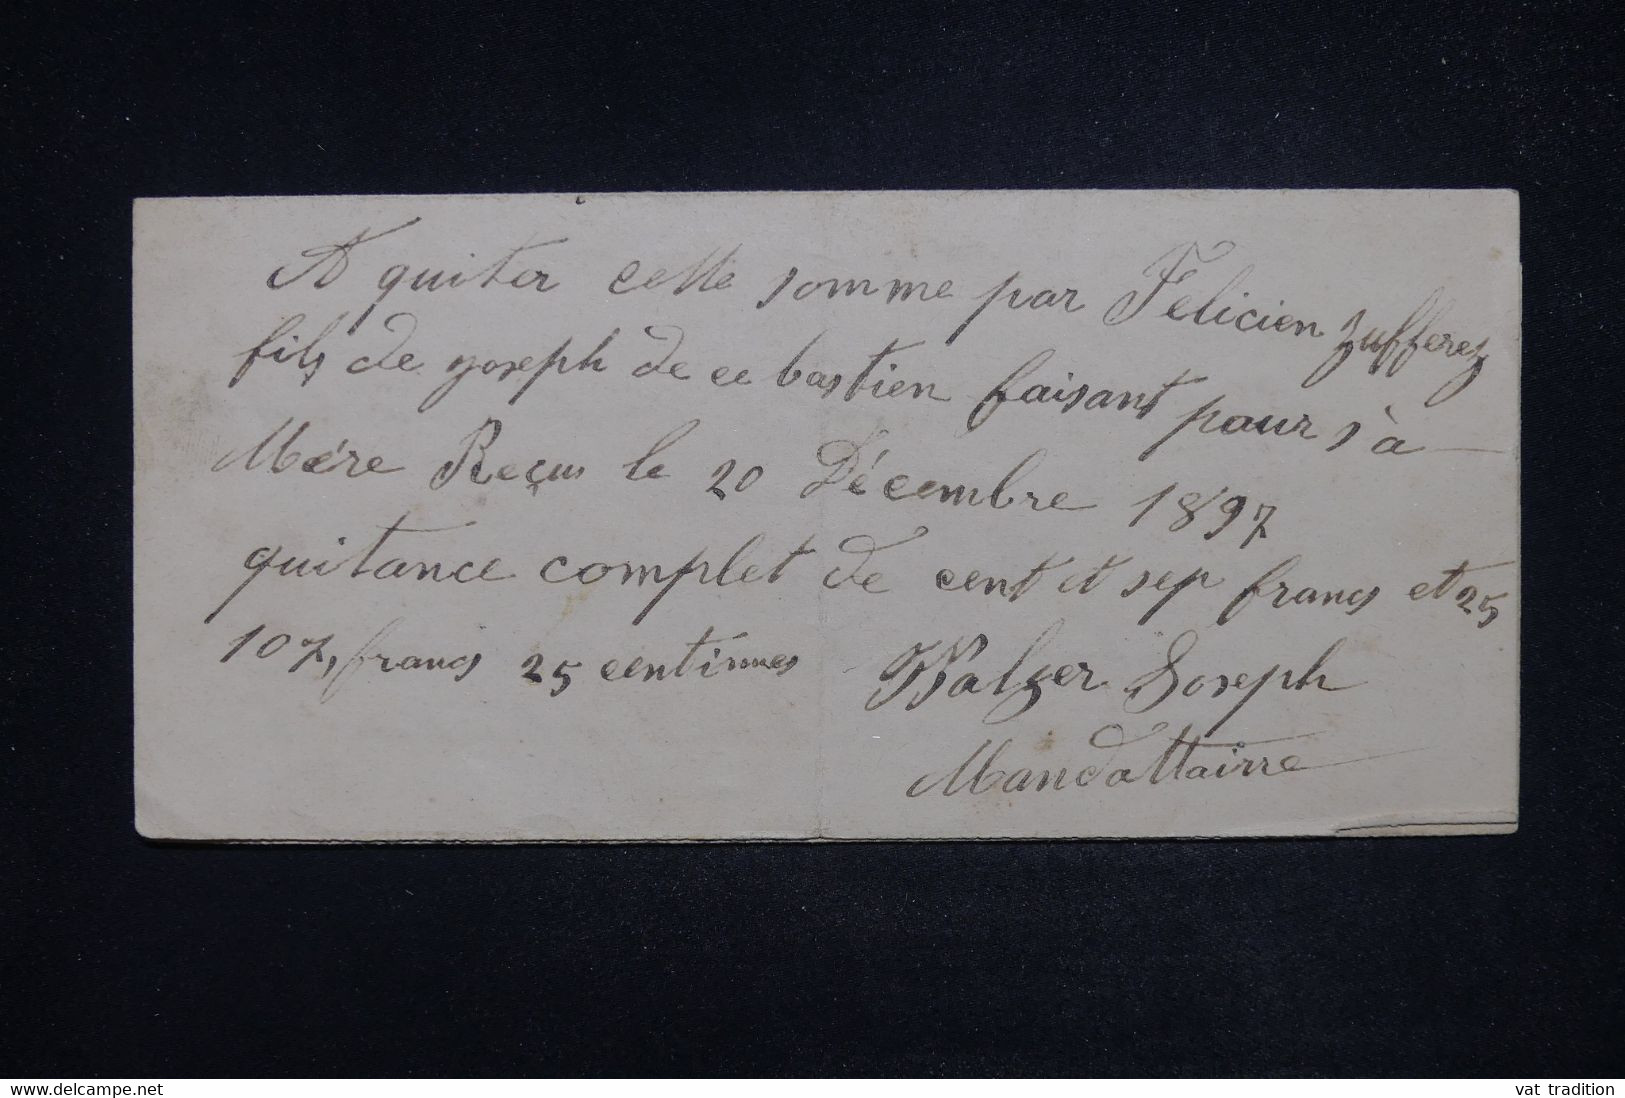 A quiter cette somme par Felicien Zufferey
fils de joseph de ce bastien faisant pour s'à
Mére Reçus le 20 Décembre 1897
quitance complet de cent et sep francs et 25
107, francs 25 centimes Walzer Joseph
Mandattairre
www.delcampe.net
vat tradition